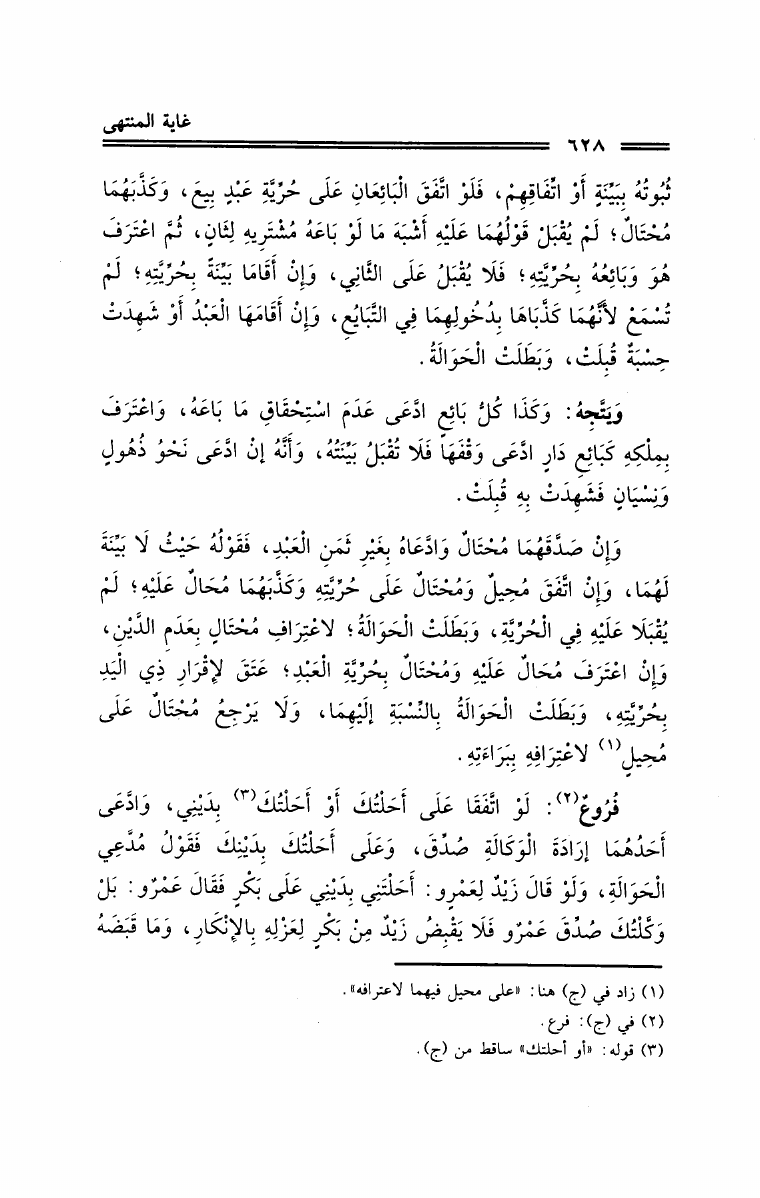 غاية المنتهى
٦٢٨
ثُبُوتُهُ بِبَيِّنَةٍ أَوْ اتِّفَاقِهِمْ، فَلَوْ اتَّفَقَ الْبَائِعَانِ عَلَى حُرِّيَّةِ عَبْدٍ بِيعَ، وَكَذَّبَهُمَا
مُحْتَالٌ؛ لَمْ يُقْبَلْ قَوْلُهُمَا عَلَيْهِ أَشْبَهَ مَا لَوْ بَاعَهُ مُشْتَرِيهِ لِثَانٍ، ثُمَّ اعْتَرَفَ
هُوَ وَبَائِعُهُ بِحُرِّيَّتِهِ؛ فَلَا يُقْبَلُ عَلَى الثَّانِي، وَإِنْ أَقَامَا بَيِّنَةً بِحُرِّيَّتِهِ؛ لَمْ
تُسْمَعْ لأَنَّهُمَا كَذَّبَاهَا بِدُخُولِهِمَا فِي التَّبَايُعِ، وَإِنْ أَقَامَهَا الْعَبْدُ أَوْ شَهِدَتْ
حِسْبَةٌ قُبِلَتْ، وَبَطَلَتْ الْحَوَالَةُ.
وَيَتَّجِهُ: وَكَذَا كُلُّ بَائِعٍ ادَّعَى عَدَمَ اسْتِحْقَاقِ مَا بَاعَهُ، وَاعْتَرَفَ
بِمِلْكِهِ كَبَائِعِ دَارٍ ادَّعَى وَقْفَهَا فَلَا تُقْبَلُ بَيِّنَتُهُ، وَأَنَّهُ إنْ ادَّعَى نَحْوُ ذُهُولٍ
وَنِسْيَانٍ فَشَهِدَتْ بِهِ قُبِلَتْ.
وَإِنْ صَدَّقَهُمَا مُحْتَالٌ وَادَّعَاهُ بِغَيْرِ ثَمَنِ الْعَبْدِ، فَقَوْلُهُ حَيْثُ لَا بَيِّنَةَ
لَهُمَا، وَإِنْ اتَّفَقَ مُحِيلٌ وَمُحْتَالٌ عَلَى حُرِّيَّتِهِ وَكَذَّبَهُمَا مُحَالٌ عَلَيْهِ؛ لَمْ
يُقْبَلَا عَلَيْهِ فِي الْحُرِّيَّةِ، وَبَطَلَتْ الْحَوَالَةُ؛ لاعْتِرَافِ مُحْتَالٍ بِعَدَمِ الدَّيْنِ،
وَإِنْ اعْتَرَفَ مُحَالٌ عَلَيْهِ وَمُحْتَالٌ بِحُرِّيَّةِ الْعَبْدِ؛ عَتَقَ لإِقْرَارِ ذِي الْيَدِ
بِحُرِّيَّتِهِ، وَبَطَلَتْ الْحَوَالَةُ بِالنِّسْبَةِ إلَيْهِمَا، وَلَا يَرْجِعُ مُحْتَالٌ عَلَى
مُحِيلٍ(١) لاعْتِرَافِهِ بِبَرَاءَتِهِ.
فُرُوعٌ(٢): لَوْ اتَّفَقَا عَلَى أَحَلْتُكَ أَوْ أَحَلْتُكَ(٣) بِدَيْنِي، وَادَّعَى
أَحَدُهُمَا إرَادَةَ الْوَكَالَةِ صُدِّقَ، وَعَلَى أَحَلْتُكَ بِدَيْنِكَ فَقَوْلُ مُدَّعِي
الْحَوَالَةِ، وَلَوْ قَالَ زَيْدٌ لِعَمْرٍو: أَحَلْتَنِي بِدَيْنِي عَلَى بَكْرٍ فَقَالَ عَمْرٌو: بَلْ
وَكَّلْتُكَ صُدِّقَ عَمْرٌو فَلَا يَقْبِضُ زَيْدٌ مِنْ بَكْرٍ لِعَزْلِهِ بِالإِنْكَارِ، وَمَا قَبَضَهُ
(١) زاد في (ج) هنا: «على محيل فيهما لاعترافه».
(٢) في (ج): فرع.
(٣) قوله: «أو أحلتك» ساقط من (ج).